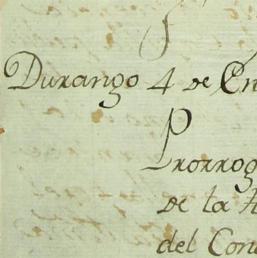 Durango 4 de En
Prorrog
de la
del Con